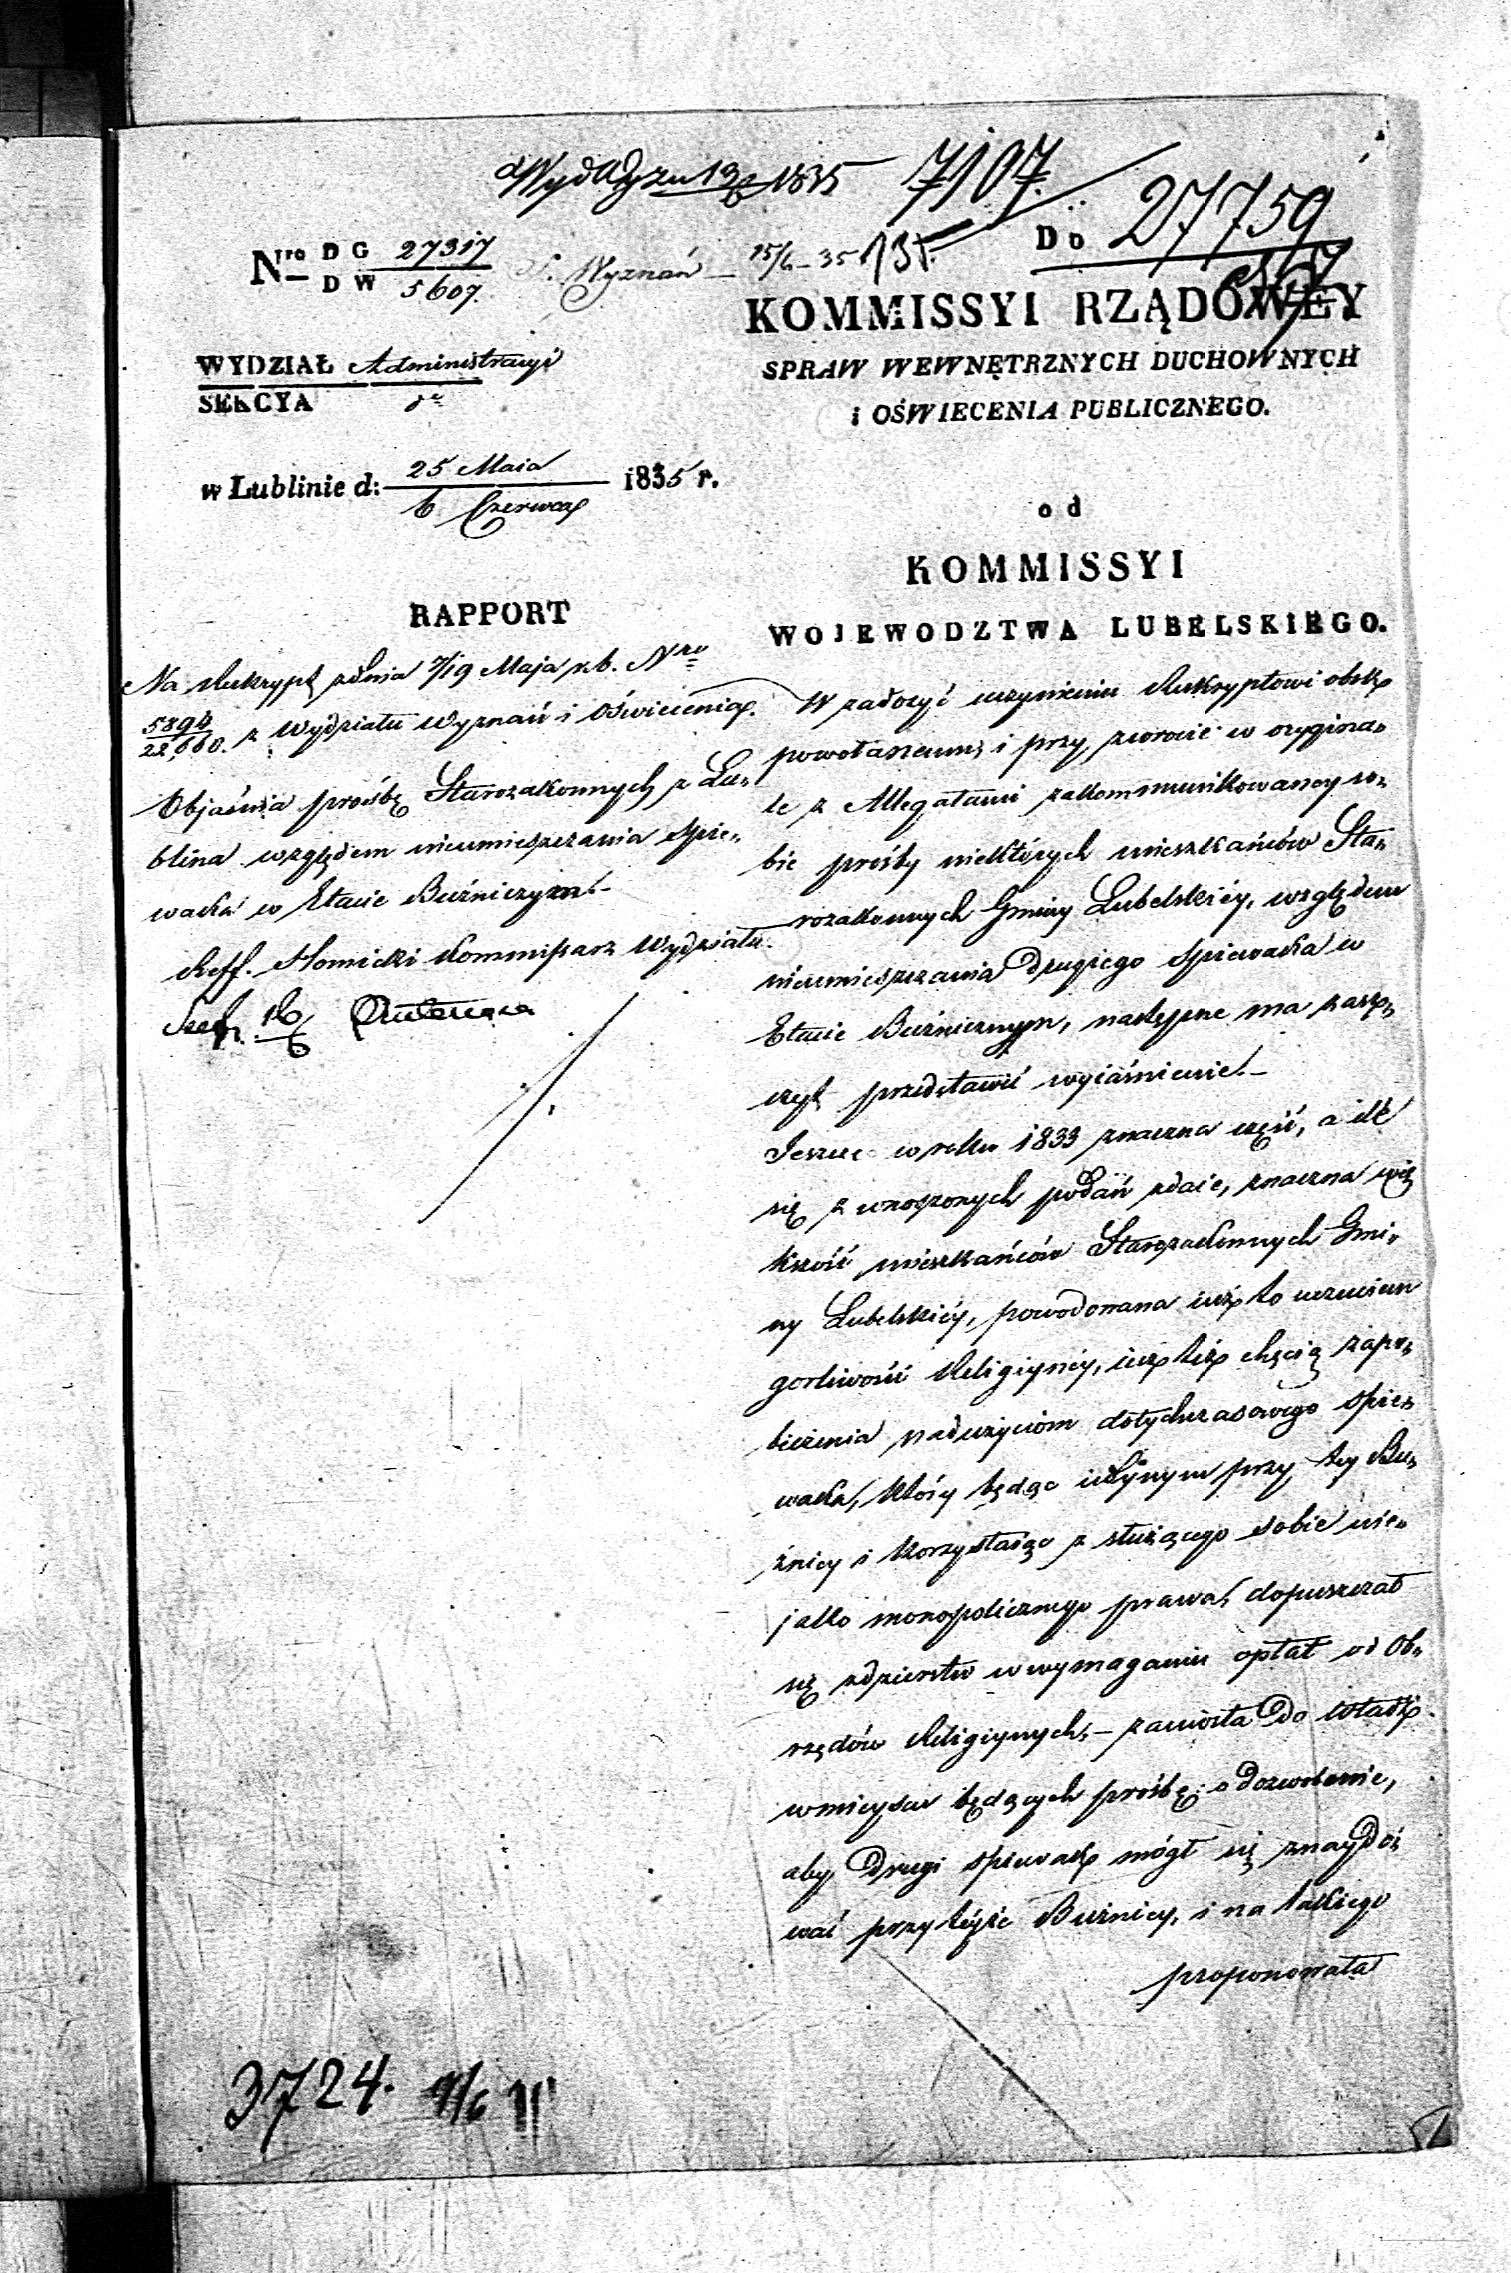 7107.
Do 27759
Nro D G 27317
D W 5607.
S. Wyznań — 15/6 – 35
KOMMISSYI RZĄDOWEY
SPRAW WEWNĘTRZNYCH DUCHOWNYCH
i OŚWIECENIA PUBLICZNEGO.
WYDZIAŁ Administracyi
SEKCYA
w Lublinie d: 25 Maia 1835 r.
6 Czerwca
od
KOMMISSYI
WOJEWODZTWA LUBELSKIEGO.
RAPPORT
Na Reskrypt z dnia 7/19 Maja r.b. Nro
5894
22,660. z Wydziału Wyznań i Oświecenia.
Objaśnia prośbę Starozakonnych z Lu„
blina względem nieumieszczania spie„
waka w Etacie Buźniczym.—
Reff. Słomicki Kommissarz Wydziału.
W zadosyć uczynieniu Reskryptowi obok
powołanemu, i przy zwrocie w orygina„
le z Allegatami zakommunikowaney so„
bie prośby niektórych mieszkańców Sta„
rozakonnych Gminy Lubelskiéy, względem
nieumieszczania drugiego spiewaka w
Etacie Buźnicznym, następne ma zasz„
czyt przedstawić wyiaśnienie.—
Jeszcze w roku 1833 znaczna część, a ile
się z wnoszonych podań zdaie, znaczna więk
kszość mieszkańców Starozakonnych Gmi„
ny Lubelskiéy, powodowana iuż to uczuciem
gorliwości Religiynéy, iuż też chęcią zapo„
bieżenia nadużyciom dotychczasowego spie„
waka, który będąc iedynym przy téy Bu„
źnicy i korzystaiąc z służącego sobie nie„
jako monopolicznego prawa, dopuszczał
się zdzierstw w wymaganiu opłat od Ob„
rzędów Religiynych,— zaniosła do Władz
w mieyscu będących prośbę o dozwolenie,
aby drugi spiewak mógł się znaydo„
wać przy téyże Buźnicy, i na takiego
proponowała
3724. 9/6